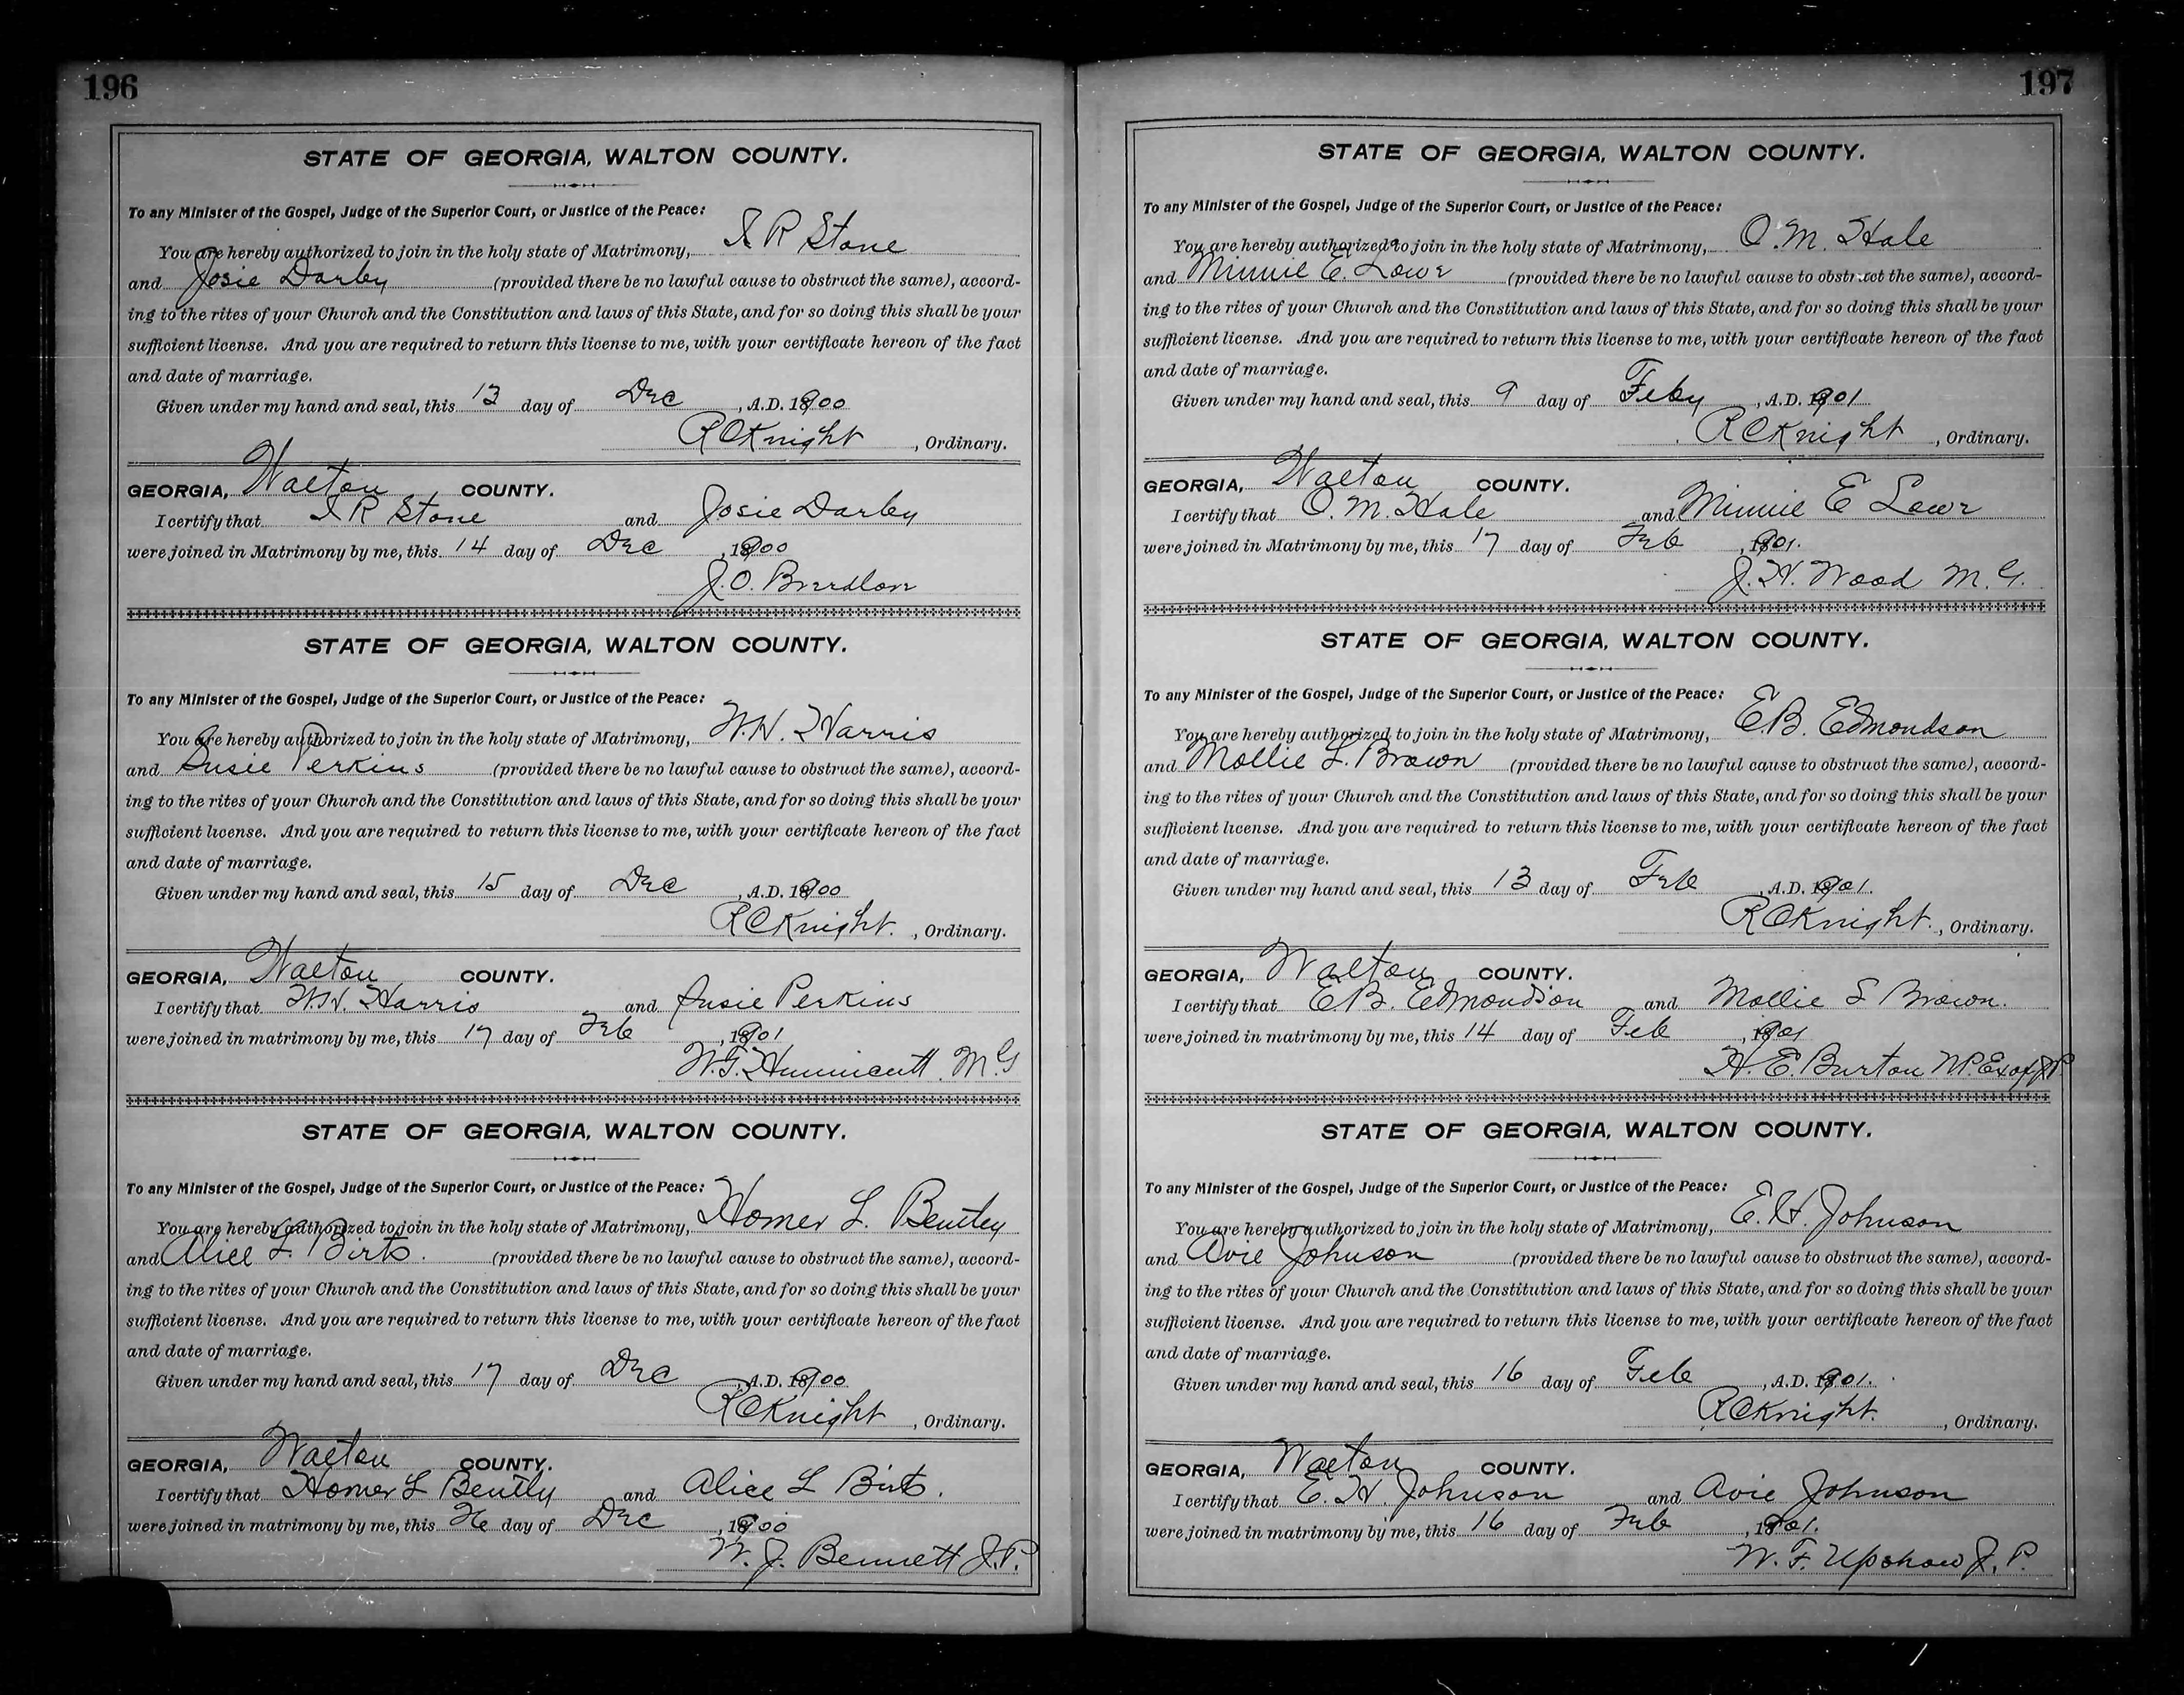 196
STATE OF GEORGIA, WALTON COUNTY.
To any Minister of the Gospel, Judge of the Superior Court, or Justice of the Peace:
You are hereby authorized to join in the holy state of Matrimony, I R Stone
and Josie Darby (provided there be no lawful cause to obstruct the same), accord-
ing to the rites of your Church and the Constitution and laws of this State, and for so doing this shall be your
sufficient license. And you are required to return this license to me, with your certificate hereon of the fact
and date of marriage.
Given under my hand and seal, this 13 day of Dec, A.D. 1900
R C Knight, Ordinary.
GEORGIA, Walton COUNTY.
I certify that I R Stone and Josie Darby
were joined in Matrimony by me, this 14 day of Dec, 1900
J. O. Breedlove
STATE OF GEORGIA, WALTON COUNTY.
To any Minister of the Gospel, Judge of the Superior Court, or Justice of the Peace:
You are hereby authorized to join in the holy state of Matrimony, W. H. Harris
and Susie Perkins (provided there be no lawful cause to obstruct the same), accord-
ing to the rites of your Church and the Constitution and laws of this State, and for so doing this shall be your
sufficient license. And you are required to return this license to me, with your certificate hereon of the fact
and date of marriage.
Given under my hand and seal, this 15 day of Dec, A.D. 1900
R C Knight., Ordinary.
GEORGIA, Walton COUNTY.
I certify that W. H. Harris and Susie Perkins
were joined in matrimony by me, this 17 day of Feb, 1901
W. T. Hunnicutt. M G
STATE OF GEORGIA, WALTON COUNTY.
To any Minister of the Gospel, Judge of the Superior Court, or Justice of the Peace:
You are hereby authorized to join in the holy state of Matrimony, Homer L. Bentley
and Alice L. Birts. (provided there be no lawful cause to obstruct the same), accord-
ing to the rites of your Church and the Constitution and laws of this State, and for so doing this shall be your
sufficient license. And you are required to return this license to me, with your certificate hereon of the fact
and date of marriage.
Given under my hand and seal, this 17 day of Dec, A.D. 1900
R C Knight, Ordinary.
GEORGIA, Walton COUNTY.
I certify that Homer L Bently and Alice L Birts.
were joined in matrimony by me, this 26 day of Dec, 1900
W. J. Bennett J.P.
197
STATE OF GEORGIA, WALTON COUNTY.
To any Minister of the Gospel, Judge of the Superior Court, or Justice of the Peace:
You are hereby authorized to join in the holy state of Matrimony, O. M. Hale
and Minnie E. Lowe (provided there be no lawful cause to obstruct the same), accord-
ing to the rites of your Church and the Constitution and laws of this State, and for so doing this shall be your
sufficient license. And you are required to return this license to me, with your certificate hereon of the fact
and date of marriage.
Given under my hand and seal, this 9 day of Feby, A.D. 1901
R C Knight, Ordinary.
GEORGIA, Walton COUNTY.
I certify that O. M. Hale and Minnie E Lowe
were joined in Matrimony by me, this 17 day of Feb, 1901.
J. H. Wood M. G.
STATE OF GEORGIA, WALTON COUNTY.
To any Minister of the Gospel, Judge of the Superior Court, or Justice of the Peace:
You are hereby authorized to join in the holy state of Matrimony, E. B. Edmondson
and Mollie L. Brown (provided there be no lawful cause to obstruct the same), accord-
ing to the rites of your Church and the Constitution and laws of this State, and for so doing this shall be your
sufficient license. And you are required to return this license to me, with your certificate hereon of the fact
and date of marriage.
Given under my hand and seal, this 13 day of Feb, A.D. 1901.
R C Knight., Ordinary.
GEORGIA, Walton COUNTY.
I certify that E. B. Edmondson and Mollie L Brown.
were joined in matrimony by me, this 14 day of Feb, 1901
H. E. Burton N.P. Exof J.P.
STATE OF GEORGIA, WALTON COUNTY.
To any Minister of the Gospel, Judge of the Superior Court, or Justice of the Peace:
You are hereby authorized to join in the holy state of Matrimony, E. H. Johnson
and Avie Johnson (provided there be no lawful cause to obstruct the same), accord-
ing to the rites of your Church and the Constitution and laws of this State, and for so doing this shall be your
sufficient license. And you are required to return this license to me, with your certificate hereon of the fact
and date of marriage.
Given under my hand and seal, this 16 day of Feb, A.D. 1901.
R C Knight., Ordinary.
GEORGIA, Walton COUNTY.
I certify that E. H. Johnson and Avie Johnson
were joined in matrimony by me, this 16 day of Feb, 1901.
W. F. Upshaw J. P.